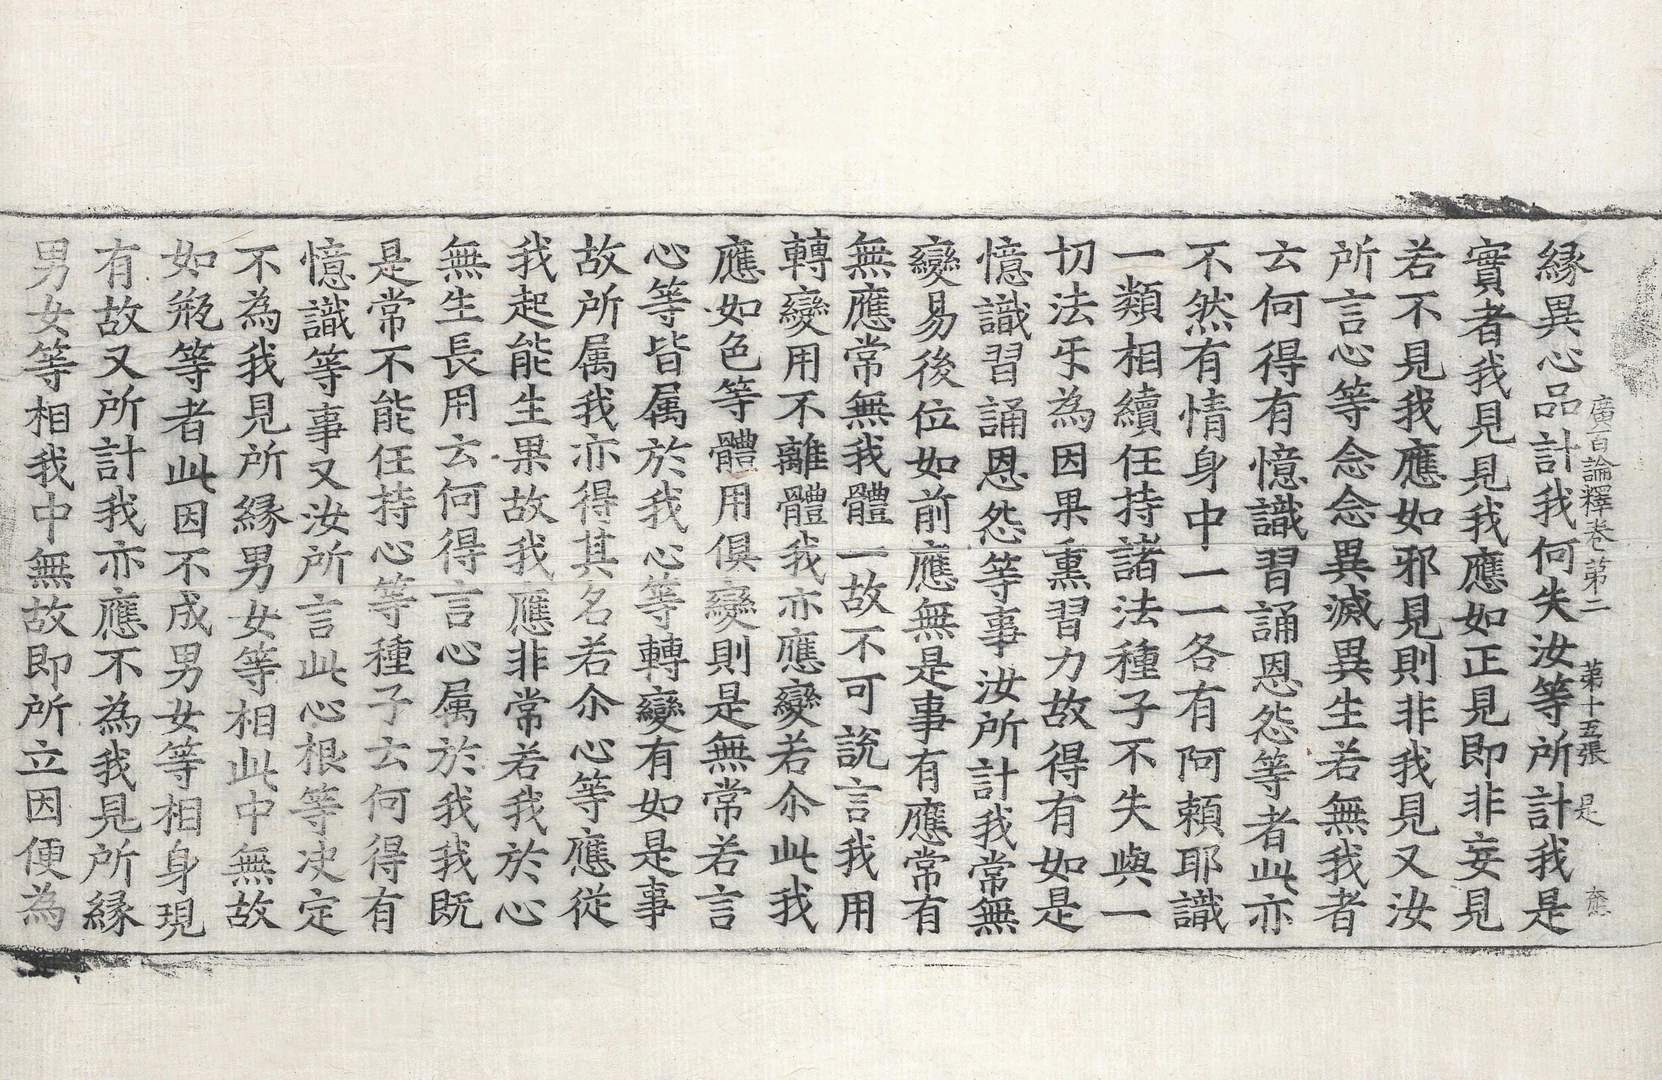 廣百論釋卷第二　第十五張　是
縁異心品計我何失汝等所計我是
實者我見見我應如正見即非妄見
若不見我應如邪見則非我見又汝
所言心等念念異滅異生若無我者
云何得有憶識習誦恩怨等者此亦
不然有情身中一一各有阿頼耶識
一類相續任持諸法種子不失與一
切法𤓰為因果熏習力故得有如是
憶識習誦恩怨等事汝所計我常無
變易後位如前應無是事有應常有
無應常無我體一故不可說言我用
轉變用不離體我亦應變若尒此我
應如色等體用俱變則是無常若言
心等皆属於我心等轉變有如是事
故所属我亦得其名若尒心等應從
我起能生果故我應非常若我於心
無生長用云何得言心属於我我既
是常不能任持心等種子云何得有
憶識等事又汝所言此心根等决定
不為我見所縁男女等相此中無故
如瓶等者此因不成男女等相身現
有故又所計我亦應不為我見所縁
男女等相我中無故即所立因便為